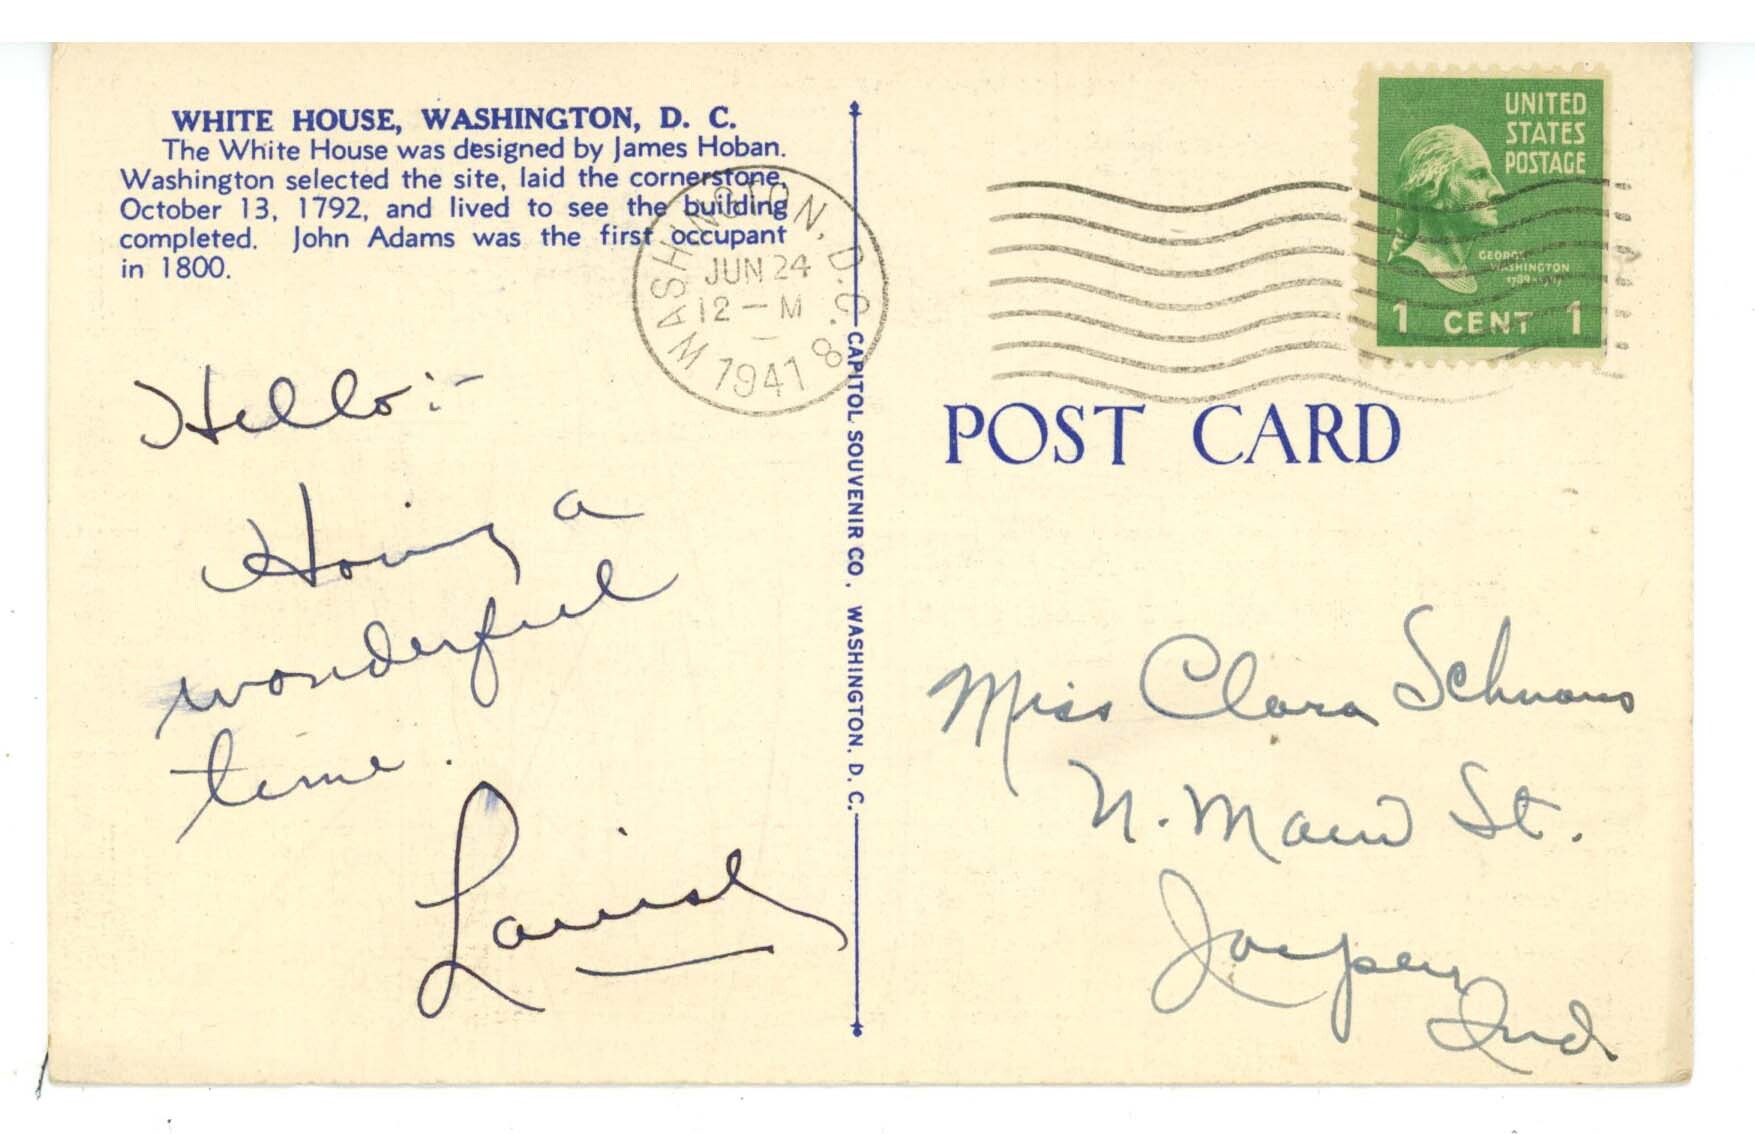 WHITE HOUSE, WASHINGTON, D. C.
The White House was designed by James Hoban.
Washington selected the site, laid the cornerstone,
October 13, 1792, and lived to see the building
completed. John Adams was the first occupant
in 1800.
Hello:-
Having a
wonderful
time.
Louise
CAPITOL SOUVENIR CO., WASHINGTON, D. C.
WASHINGTON, D.C. 8
JUN 24
12 - M
1941
UNITED
STATES
POSTAGE
GEORGE
WASHINGTON
1789-1797
1 CENT 1
POST CARD
Miss Clara
N. Main St.
Jasper
Ind